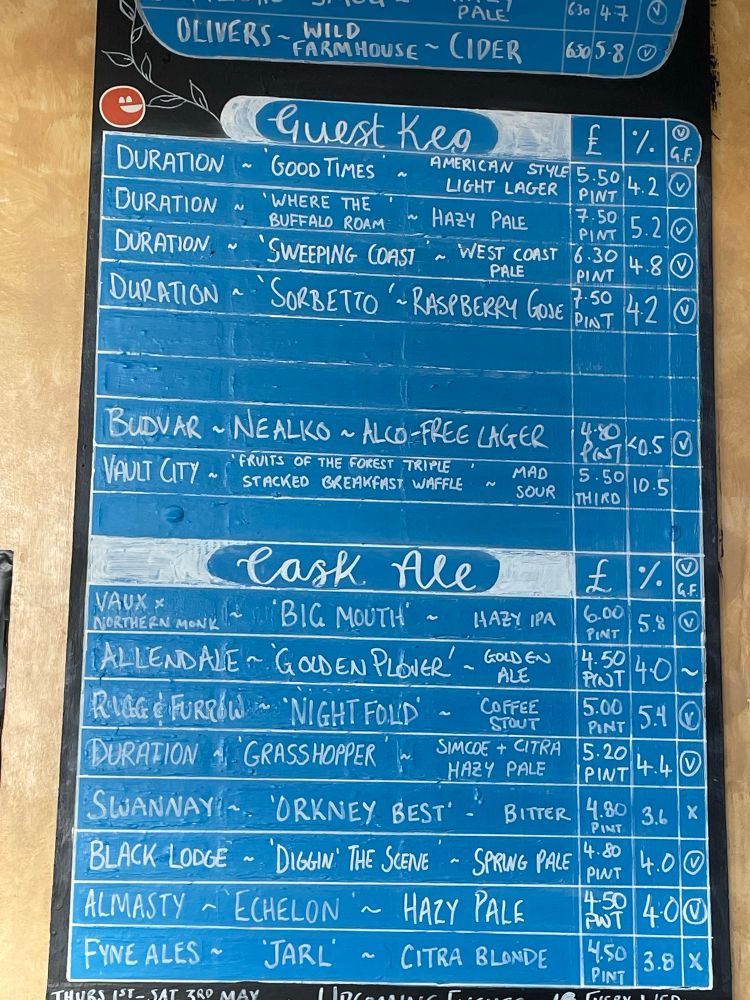 PALE 630 4.7 V
OLIVERS ~ WILD FARMHOUSE ~ CIDER 6.50 5.8 V
Guest Keg £ % V G.F.
DURATION ~ 'GOOD TIMES' ~ AMERICAN STYLE LIGHT LAGER 5.50 PINT 4.2 V
DURATION ~ 'WHERE THE BUFFALO ROAM' ~ HAZY PALE 7.50 PINT 5.2 V
DURATION ~ 'SWEEPING COAST' ~ WEST COAST PALE 6.30 PINT 4.8 V
DURATION ~ 'SORBETTO' ~ RASPBERRY GOSE 7.50 PINT 4.2 V
BUDVAR ~ NEALKO ~ ALCO-FREE LAGER 4.80 PINT <0.5 V
VAULT CITY ~ 'FRUITS OF THE FOREST TRIPLE STACKED BREAKFAST WAFFLE' ~ MAD SOUR 5.50 THIRD 10.5
Cask Ale £ % V G.F.
VAUX x NORTHERN MONK ~ 'BIG MOUTH' ~ HAZY IPA 6.00 PINT 5.8 V
ALLENDALE ~ 'GOLDEN PLOVER' ~ GOLDEN ALE 4.50 PINT 4.0 ~
RIGG & FURROW ~ 'NIGHT FOLD' ~ COFFEE STOUT 5.00 PINT 5.4 V
DURATION ~ 'GRASSHOPPER' ~ SIMCOE + CITRA HAZY PALE 5.20 PINT 4.4 V
SWANNAY ~ 'ORKNEY BEST' - BITTER 4.80 PINT 3.6 X
BLACK LODGE ~ 'DIGGIN' THE SCENE' ~ SPRING PALE 4.80 PINT 4.0 V
ALMASTY ~ 'ECHELON' ~ HAZY PALE 4.50 PINT 4.0 V
FYNE ALES ~ 'JARL' ~ CITRA BLONDE 4.50 PINT 3.8 X
THURS 1ST - SAT 3RD MAY UPCOMING